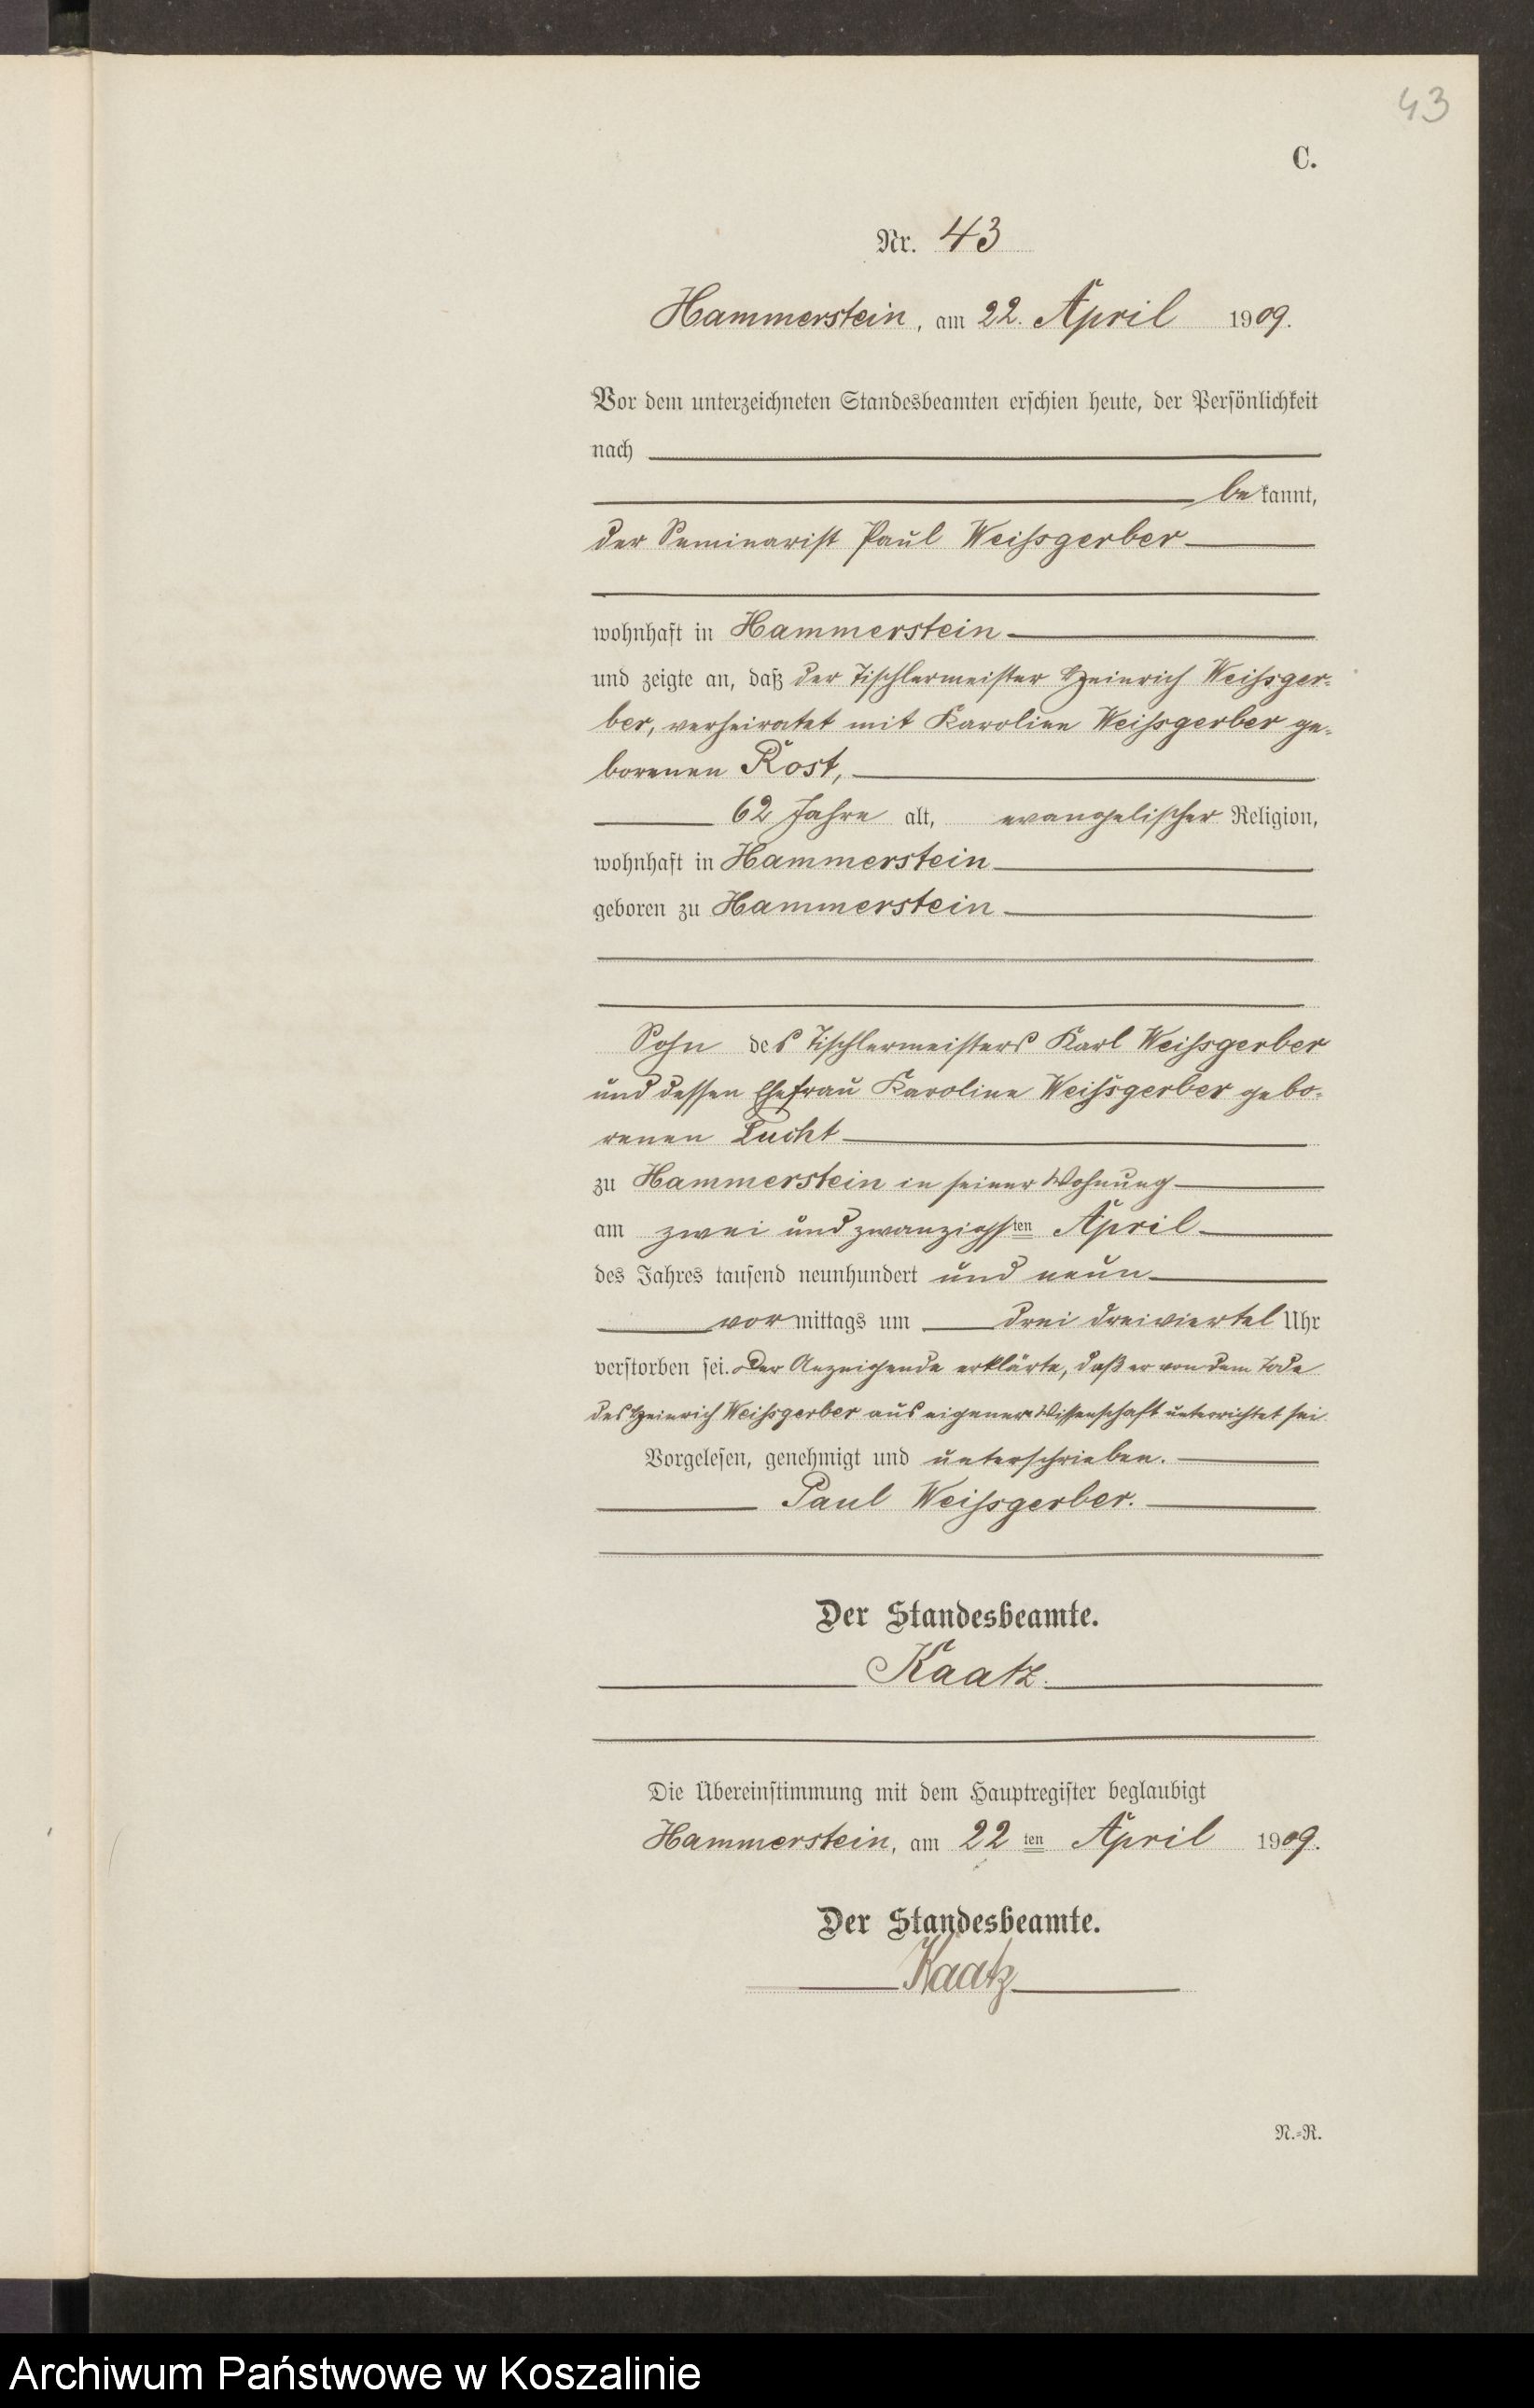 43
C.
Nr. 43
Hammerstein, am 22. April 1909.
Vor dem unterzeichneten Standesbeamten erschien heute, der Persönlichkeit
nach
bekannt,
der Seminarist Paul Weißgerber
wohnhaft in Hammerstein
und zeigte an, daß der Tischlermeister Heinrich Weißger-
ber, verheiratet mit Karoline Weißgerber ge-
borenen Rost,
62 Jahre alt, evangelischer Religion,
wohnhaft in Hammerstein
geboren zu Hammerstein
Sohn des Tischlermeisters Karl Weißgerber
und dessen Ehefrau Karoline Weißgerber gebo-
renen Lucht
zu Hammerstein in seiner Wohnung
am zwei und zwanzigsten April
des Jahres tausend neunhundert und neun
vormittags um drei dreiviertel Uhr
verstorben sei. Der Anzeigende erklärte, daß er von dem Tode
des Heinrich Weißgerber aus eigener Wissenschaft unterrichtet sei.
Vorgelesen, genehmigt und unterschrieben.
Paul Weißgerber.
Der Standesbeamte.
Kaatz.
Die Übereinstimmung mit dem Hauptregister beglaubigt
Hammerstein, am 22ten April 1909.
Der Standesbeamte.
Kaatz
N.-R.
Archiwum Państwowe w Koszalinie